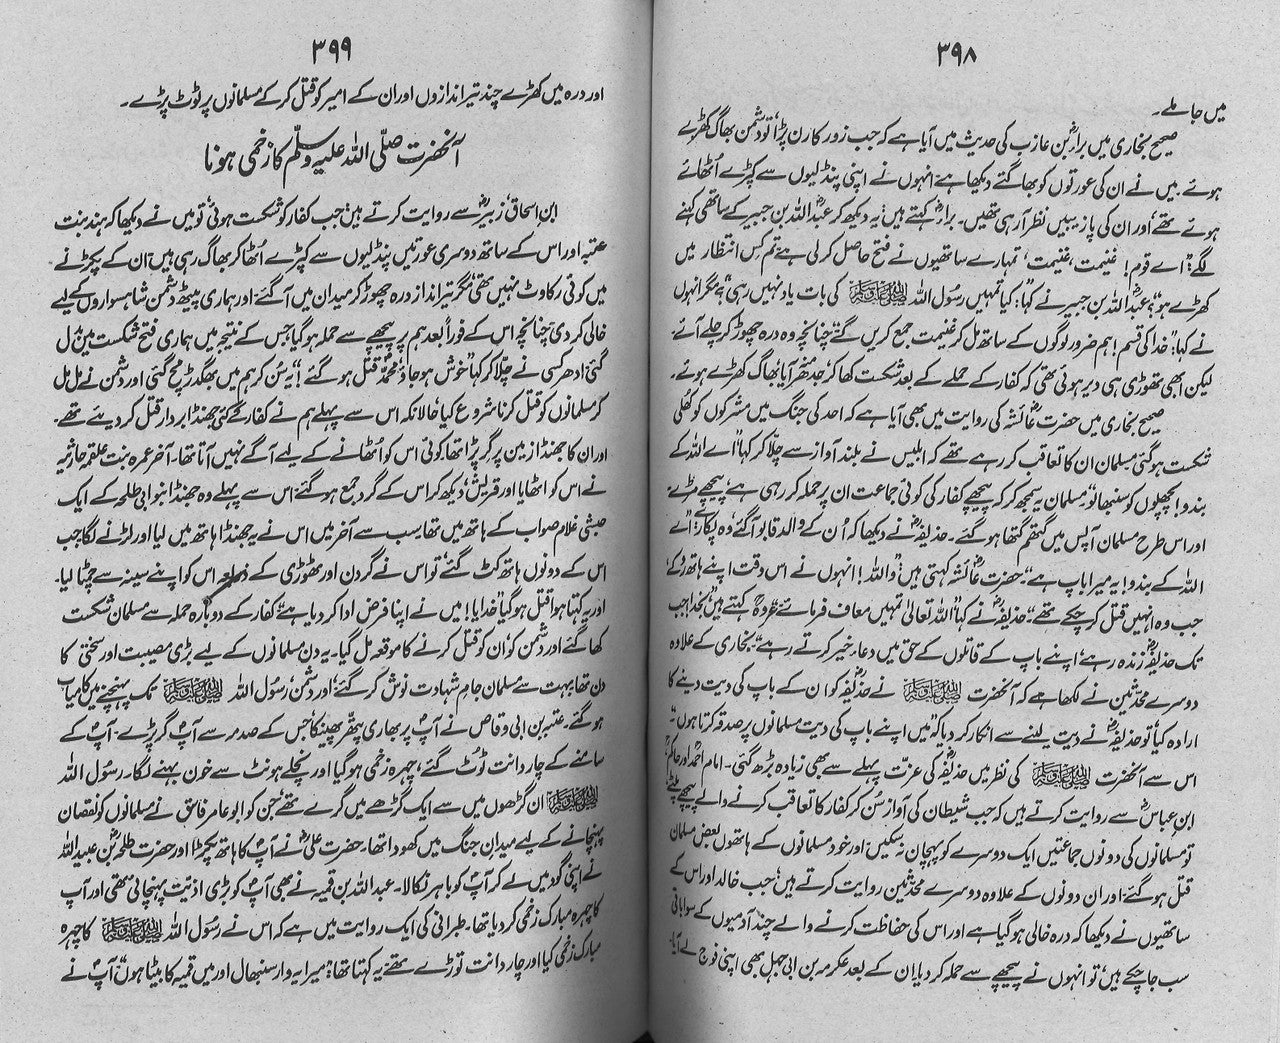 ۳۹۸
میں جا ملے۔
صحیح بخاری میں براءؓ بن عازب کی حدیث میں آیا ہے کہ جب زور کا رن پڑا، تو دشمن بھاگ کھڑے
ہوئے۔ میں نے ان کی عورتوں کو بھاگتے دیکھا ہے انہوں نے اپنی پنڈلیوں سے کپڑے اُٹھائے
ہوئے تھے، اور ان کی پازیبیں نظر آرہی تھیں۔ براءؓ کہتے ہیں: یہ دیکھ کر عبداللہ بن جبیر کے ساتھی کہنے
لگے: "اے قوم! غنیمت، غنیمت، تمہارے ساتھیوں نے فتح حاصل کر لی ہے تم کس انتظار میں
کھڑے ہو؟" عبداللہؓ بن جبیر نے کہا: "کیا تمہیں رسول اللہ ﷺ کی بات یاد نہیں رہی؟" مگر انہوں
نے کہا: "خدا کی قسم! ہم ضرور لوگوں کے ساتھ مل کر غنیمت جمع کریں گے" چنانچہ وہ درہ چھوڑ کر چلے آئے
لیکن ابھی تھوڑی ہی دیر ہوئی تھی کہ کفار کے حملے کے بعد شکست کھا کر جدھر منہ آیا، بھاگ کھڑے ہوئے۔
صحیح بخاری میں حضرت عائشہؓ کی روایت میں بھی آیا ہے کہ احد کی جنگ میں مشرکوں کو کھلی
شکست ہو گئی مسلمان ان کا تعاقب کر رہے تھے کہ ابلیس نے بلند آواز سے چلّا کر کہا "اے اللہ کے
بندو! پچھلوں کو سنبھالو"۔ مسلمان یہ سمجھ کر کہ پیچھے کفار کی کوئی جماعت ان پر حملہ کر رہی ہے، پیچھے مڑے۔
اور اس طرح مسلمان آپس میں گتھم گتھا ہو گئے۔ حذیفہؓ نے دیکھا کہ اُن کے والد قابو آگئے، وہ پکارے: "اے
اللہ کے بندو! یہ میرا باپ ہے"۔ حضرت عائشہؓ کہتی ہیں: "واللہ! انہوں نے اس وقت اپنے ہاتھ روکے
جب وہ انہیں قتل کر چکے تھے"۔ حذیفہؓ نے کہا: "اللہ تعالیٰ تمہیں معاف فرمائے" عروہؒ کہتے ہیں: "بخدا جب
تک حذیفہؓ زندہ رہے، اپنے باپ کے قاتلوں کے حق میں دعاء خیر کرتے رہے"۔ بخاری کے علاوہ
دوسرے محدثین نے لکھا ہے کہ آنحضرت ﷺ نے حذیفہؓ کو ان کے باپ کی دیت دینے کا
ارادہ کیا، تو حذیفہؓ نے دیت لینے سے انکار کر دیا کہ "میں اپنے باپ کی دیت مسلمانوں پر صدقہ کرتا ہوں"۔
اس سے آنحضرت ﷺ کی نظر میں حذیفہؓ کی عزت پہلے سے بھی زیادہ بڑھ گئی۔ امام احمدؒ اور حاکمؒ
ابن عباسؓ سے روایت کرتے ہیں کہ جب شیطان کی آواز سُن کر کفار کا تعاقب کرنے والے پیچھے پلٹے،
تو مسلمانوں کی دونوں جماعتیں ایک دوسرے کو پہچان نہ سکیں، اور خود مسلمانوں کے ہاتھوں بعض مسلمان
قتل ہو گئے، اور ان دونوں کے علاوہ دوسرے محدثین روایت کرتے ہیں: جب خالد اور اس کے
ساتھیوں نے دیکھا کہ درہ خالی ہو گیا ہے اور اس کی حفاظت کرنے والے چند آدمیوں کے سوا باقی
سب جا چکے ہیں، تو انہوں نے پیچھے سے حملہ کر دیا، ان کے بعد عکرمہ بن ابی جہل بھی اپنی فوج لے آیا۔
۳۹۹
اور درہ میں کھڑے چند تیر اندازوں اور ان کے امیر کو قتل کر کے مسلمانوں پر ٹوٹ پڑے۔
آنحضرت صلّی اللہ علیہ وسلّم کا زخمی ہونا
ابن اسحاق، زبیرؓ سے روایت کرتے ہیں: جب کفار کو شکست ہوئی، تو میں نے دیکھا کہ ہند بنت
عتبہ اور اس کے ساتھ دوسری عورتیں پنڈلیوں سے کپڑے اُٹھا کر بھاگ رہی ہیں، ان کے پکڑنے
میں کوئی رکاوٹ نہیں تھی، مگر تیر انداز درہ چھوڑ کر میدان میں آگئے اور ہماری پیٹھ دشمن شاہسواروں کے لیے
خالی کر دی، چنانچہ اس کے فوراً بعد ہم پر پیچھے سے حملہ ہو گیا، جس کے نتیجہ میں ہماری فتح شکست میں بدل
گئی، ادھر کسی نے چلّا کر کہا "خوش ہو جاؤ، محمدؐ قتل ہو گئے"! یہ سُن کر ہم میں بھگدڑ مچ گئی اور دشمن نے مل مل
کر مسلمانوں کو قتل کرنا شروع کیا، حالانکہ اس سے پہلے ہم نے کفار کے کئی جھنڈا بردار قتل کر دیئے تھے۔
اور ان کا جھنڈا زمین پر گر پڑا تھا، کوئی اس کو اٹھانے کے لیے آگے نہیں آتا تھا۔ آخر عمرہ بنت علقمہ حارثیہ
نے اس کو اٹھایا اور قریش، دیکھ کر اس کے گرد جمع ہو گئے، اس سے پہلے وہ جھنڈا بنو ابی طلحہ کے ایک
حبشی غلام صواب کے ہاتھ میں تھا، سب سے آخر میں اس نے یہ جھنڈا ہاتھ میں لیا اور لڑنے لگا، جب
اس کے دونوں ہاتھ کٹ گئے، تو اس نے گردن اور ٹھوڑی کے ذریعہ اس کو اپنے سینہ سے چمٹا لیا۔
اور یہ کہتا ہوا قتل ہو گیا "خدایا! میں نے اپنا فرض ادا کر دیا ہے" کفار کے دوبارہ حملہ سے مسلمان شکست
کھا گئے اور دشمن کو ان کو قتل کرنے کا موقعہ مل گیا۔ یہ دن مسلمانوں کے لیے بڑی مصیبت اور سختی کا
دن تھا، بہت سے مسلمان جامِ شہادت نوش کر گئے، اور دشمن، رسول اللہ ﷺ تک پہنچنے میں کامیاب
ہو گئے۔ عتبہ بن ابی وقاص نے آپؐ پر بھاری پتھر پھینکا، جس کے صدمہ سے آپؐ گر پڑے۔ آپؐ کے
سامنے کے چار دانت ٹوٹ گئے، چہرہ زخمی ہو گیا اور نچلے ہونٹ سے خون بہنے لگا۔ رسول اللہ
ﷺ ان گڑھوں میں سے ایک گڑھے میں گرے تھے، جن کو ابو عامر فاسق نے مسلمانوں کو نقصان
پہنچانے کے لیے میدانِ جنگ میں کھودا تھا۔ حضرت علیؓ نے آپؐ کا ہاتھ پکڑا اور حضرت طلحہؓ بن عبید اللہ
نے اپنی گود میں لے کر آپؐ کو باہر نکالا۔ عبداللہ بن قمیہ نے بھی آپؐ کو بڑی اذیت پہنچائی تھی اور آپؐ
کا چہرہ مبارک زخمی کر دیا تھا۔ طبرانی کی ایک روایت میں ہے کہ اس نے رسول اللہ ﷺ کا چہرہ
مبارک زخمی کیا اور چار دانت توڑے تھے، یہ کہتا تھا: "میرا یہ وار سنبھال اور میں قمیہ کا بیٹا ہوں"، آپؐ نے